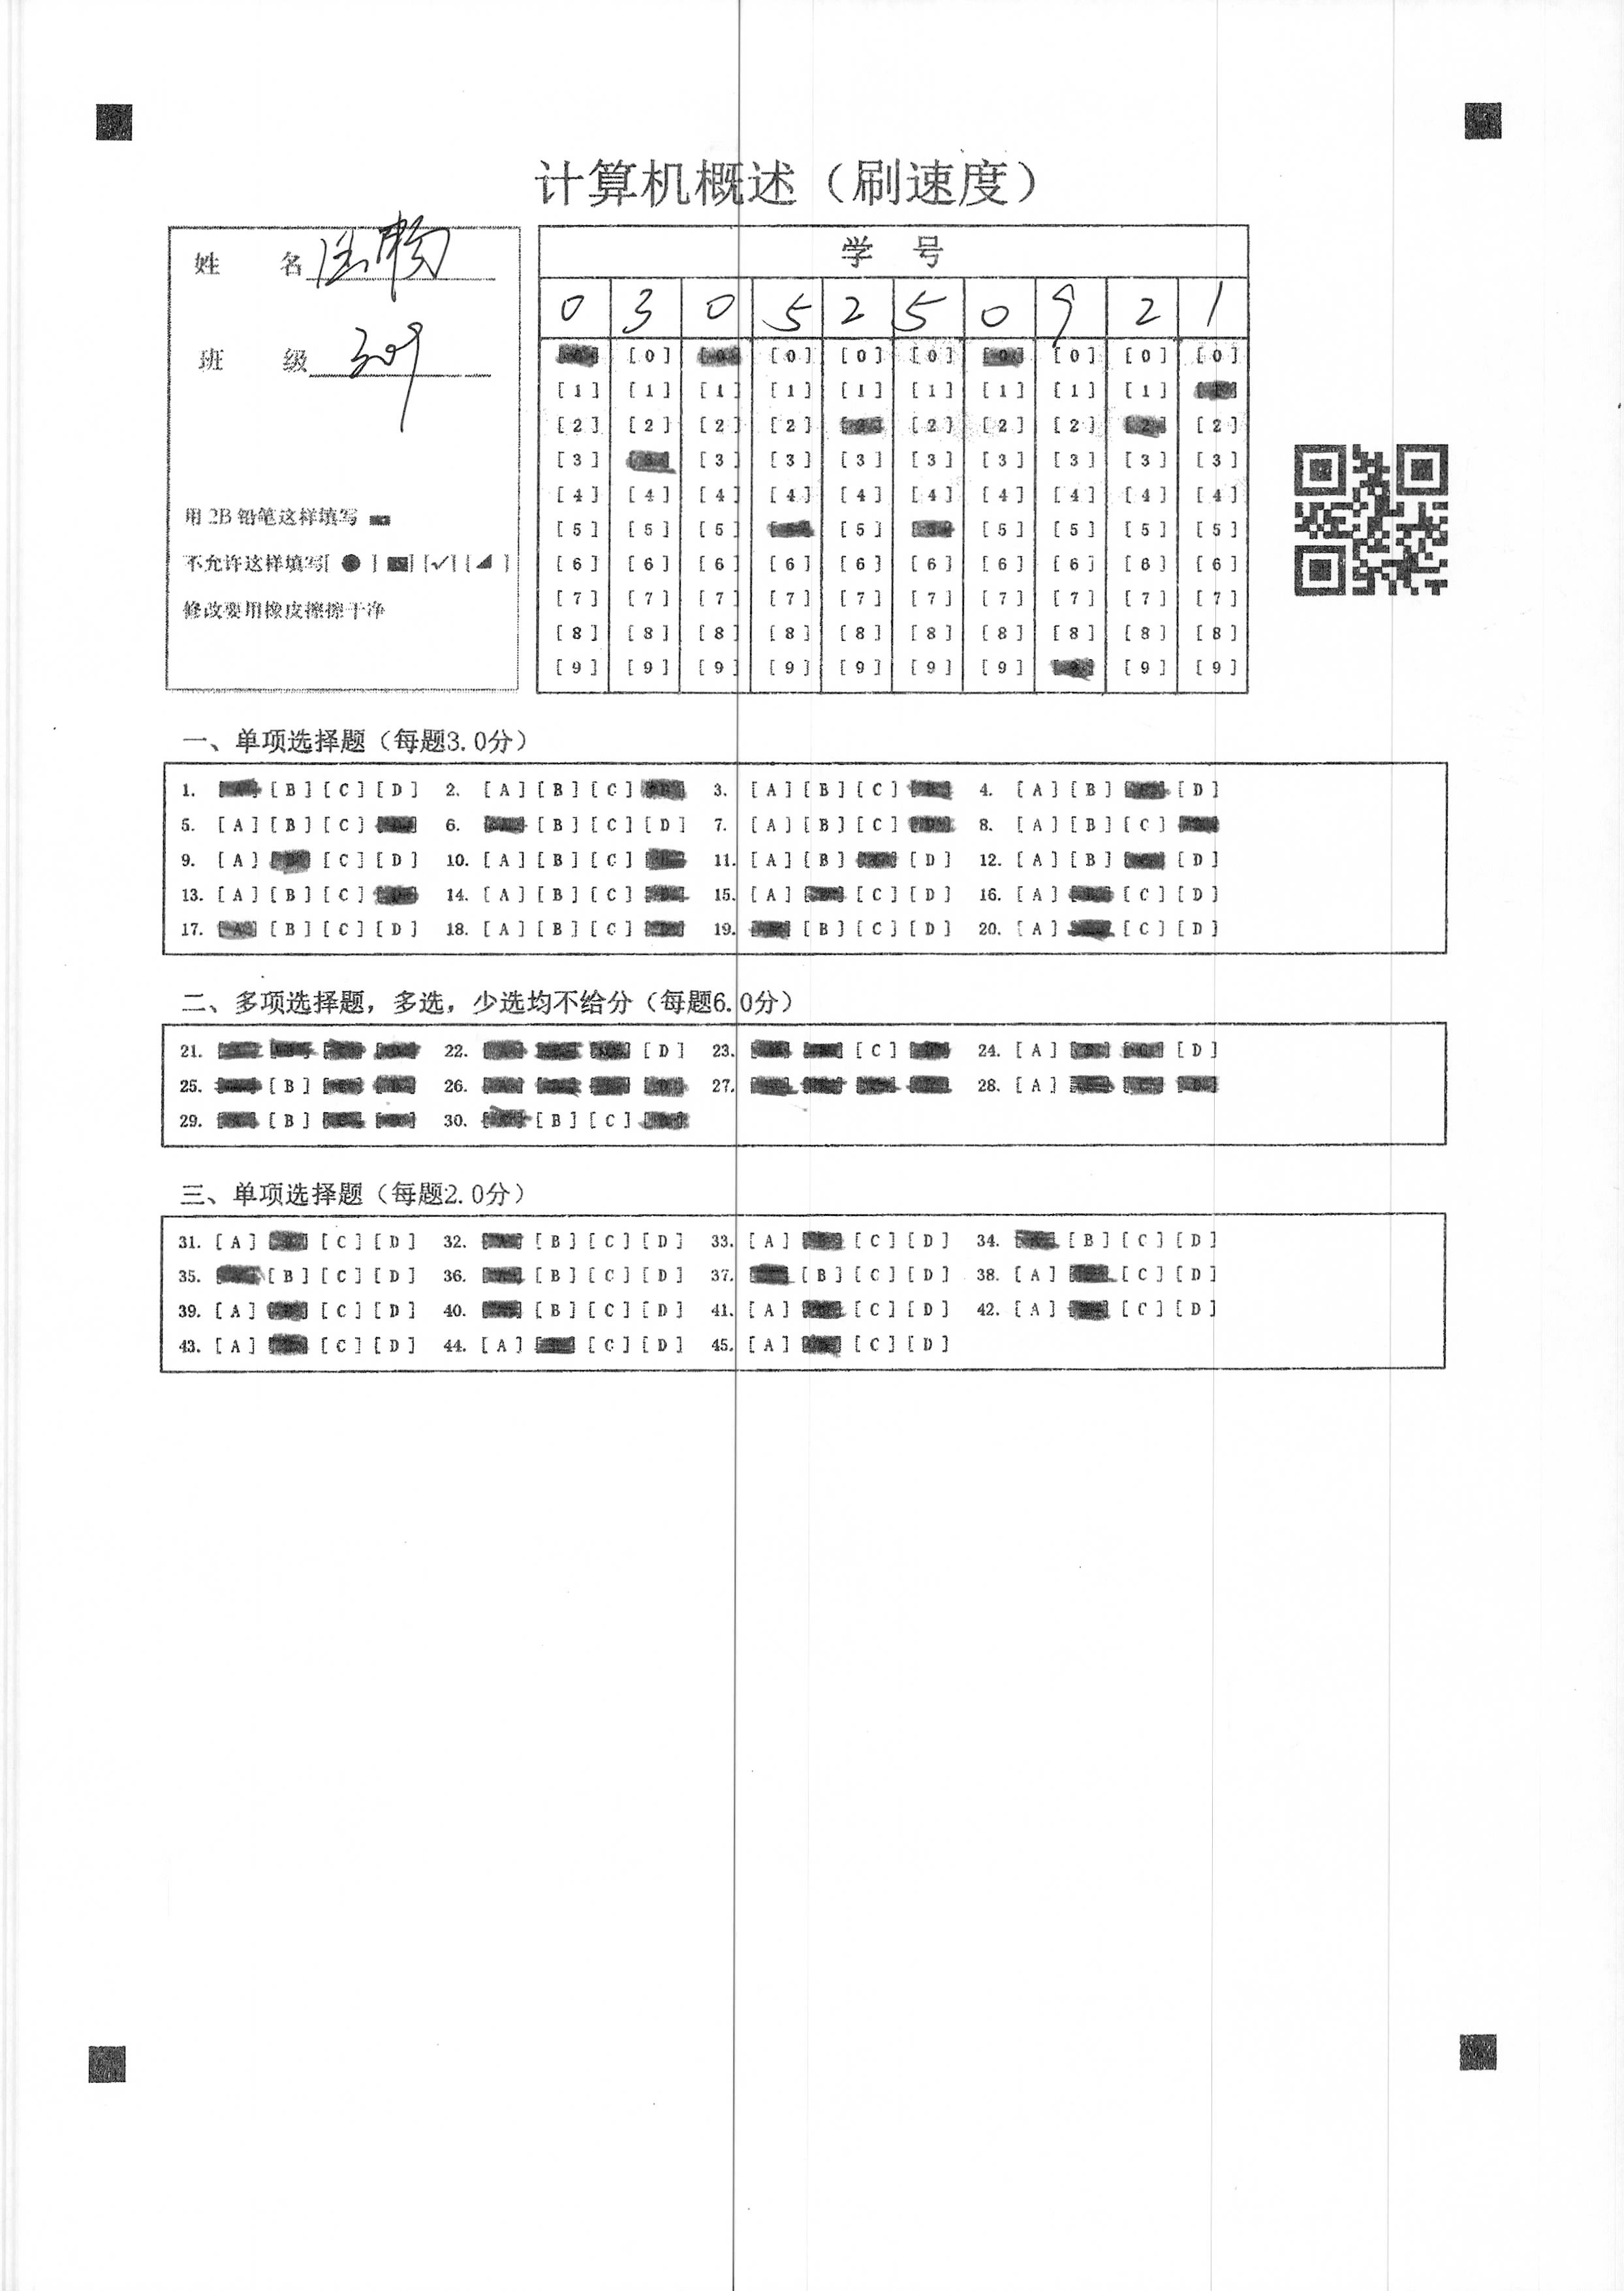 计算机概述（刷速度）
姓 名
班 级 309
用 2B 铅笔这样填写
不允许这样填写[ ● ] [■] [✓] [◢ ]
修改要用橡皮擦擦干净
学 号
0 3 0 5 2 5 0 9 2 1
[0] [0] [0] [0] [0] [0] [0] [0]
[1] [1] [1] [1] [1] [1] [1] [1] [1]
[2] [2] [2] [2] [2] [2] [2] [2]
[3] [3] [3] [3] [3] [3] [3] [3] [3]
[4] [4] [4] [4] [4] [4] [4] [4] [4] [4]
[5] [5] [5] [5] [5] [5] [5] [5]
[6] [6] [6] [6] [6] [6] [6] [6] [6] [6]
[7] [7] [7] [7] [7] [7] [7] [7] [7] [7]
[8] [8] [8] [8] [8] [8] [8] [8] [8] [8]
[9] [9] [9] [9] [9] [9] [9] [9] [9]
一、单项选择题（每题3.0分）
1. [B] [C] [D] 2. [A] [B] [C] 3. [A] [B] [C] 4. [A] [B] [D]
5. [A] [B] [C] 6. [B] [C] [D] 7. [A] [B] [C] 8. [A] [B] [C]
9. [A] [C] [D] 10. [A] [B] [C] 11. [A] [B] [D] 12. [A] [B] [D]
13. [A] [B] [C] 14. [A] [B] [C] 15. [A] [C] [D] 16. [A] [C] [D]
17. [B] [C] [D] 18. [A] [B] [C] 19. [B] [C] [D] 20. [A] [C] [D]
二、多项选择题，多选，少选均不给分（每题6.0分）
21. 22. [D] 23. [C] 24. [A] [D]
25. [B] 26. 27. 28. [A]
29. [B] 30. [B] [C]
三、单项选择题（每题2.0分）
31. [A] [C] [D] 32. [B] [C] [D] 33. [A] [C] [D] 34. [B] [C] [D]
35. [B] [C] [D] 36. [B] [C] [D] 37. [B] [C] [D] 38. [A] [C] [D]
39. [A] [C] [D] 40. [B] [C] [D] 41. [A] [C] [D] 42. [A] [C] [D]
43. [A] [C] [D] 44. [A] [C] [D] 45. [A] [C] [D]